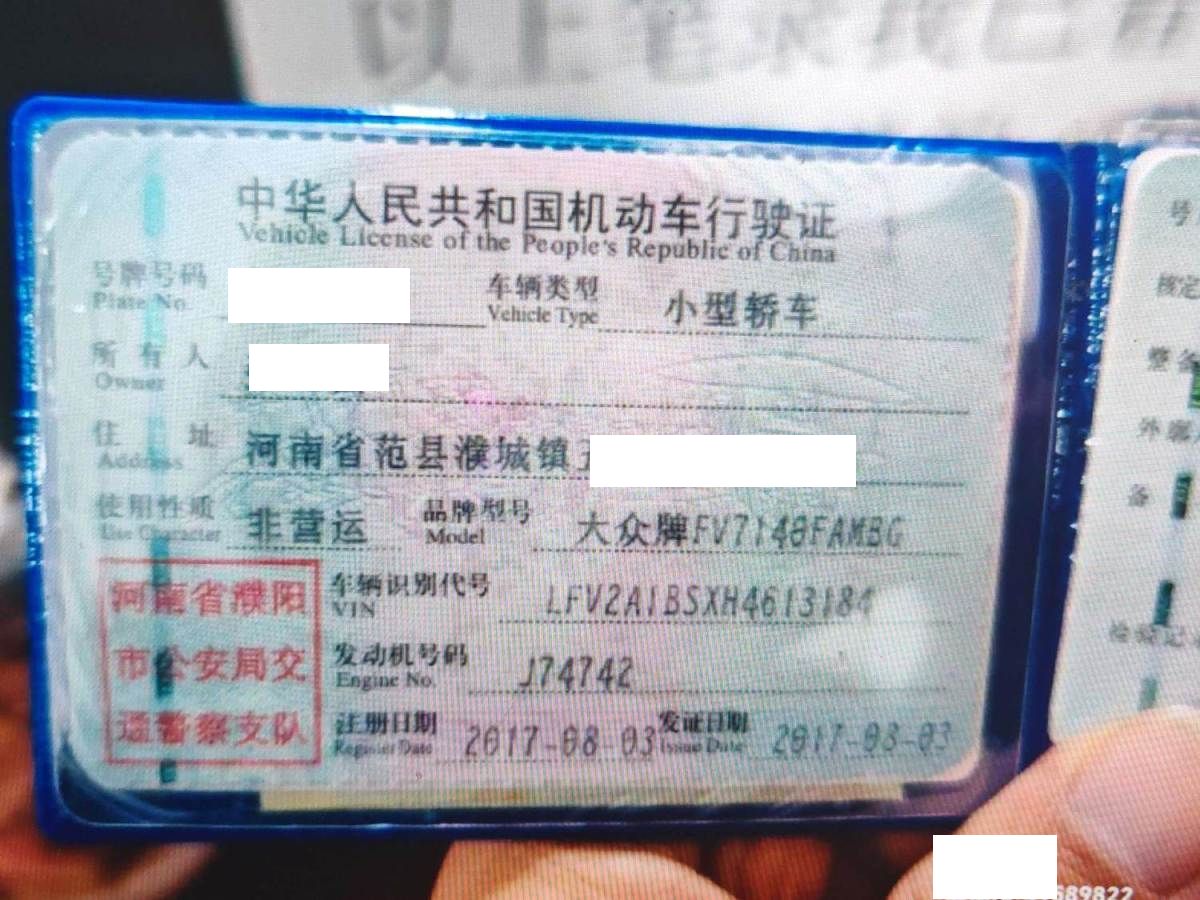 以上笔录我已
中华人民共和国机动车行驶证
Vehicle License of the People's Republic of China
号牌号码
Plate No.
车辆类型
Vehicle Type
小型轿车
所有人
Owner
住址
Address
河南省范县濮城镇
使用性质
Use Character
非营运
品牌型号
Model
大众牌FV7148FAMBG
河南省濮阳
市公安局交
通警察支队
车辆识别代号
VIN
LFV2A1BSXH4613184
发动机号码
Engine No.
J74742
注册日期
Register Date
2017-08-03
发证日期
Issue Date
2017-08-03
号
核定
整备
外廓
备
检验记
589822